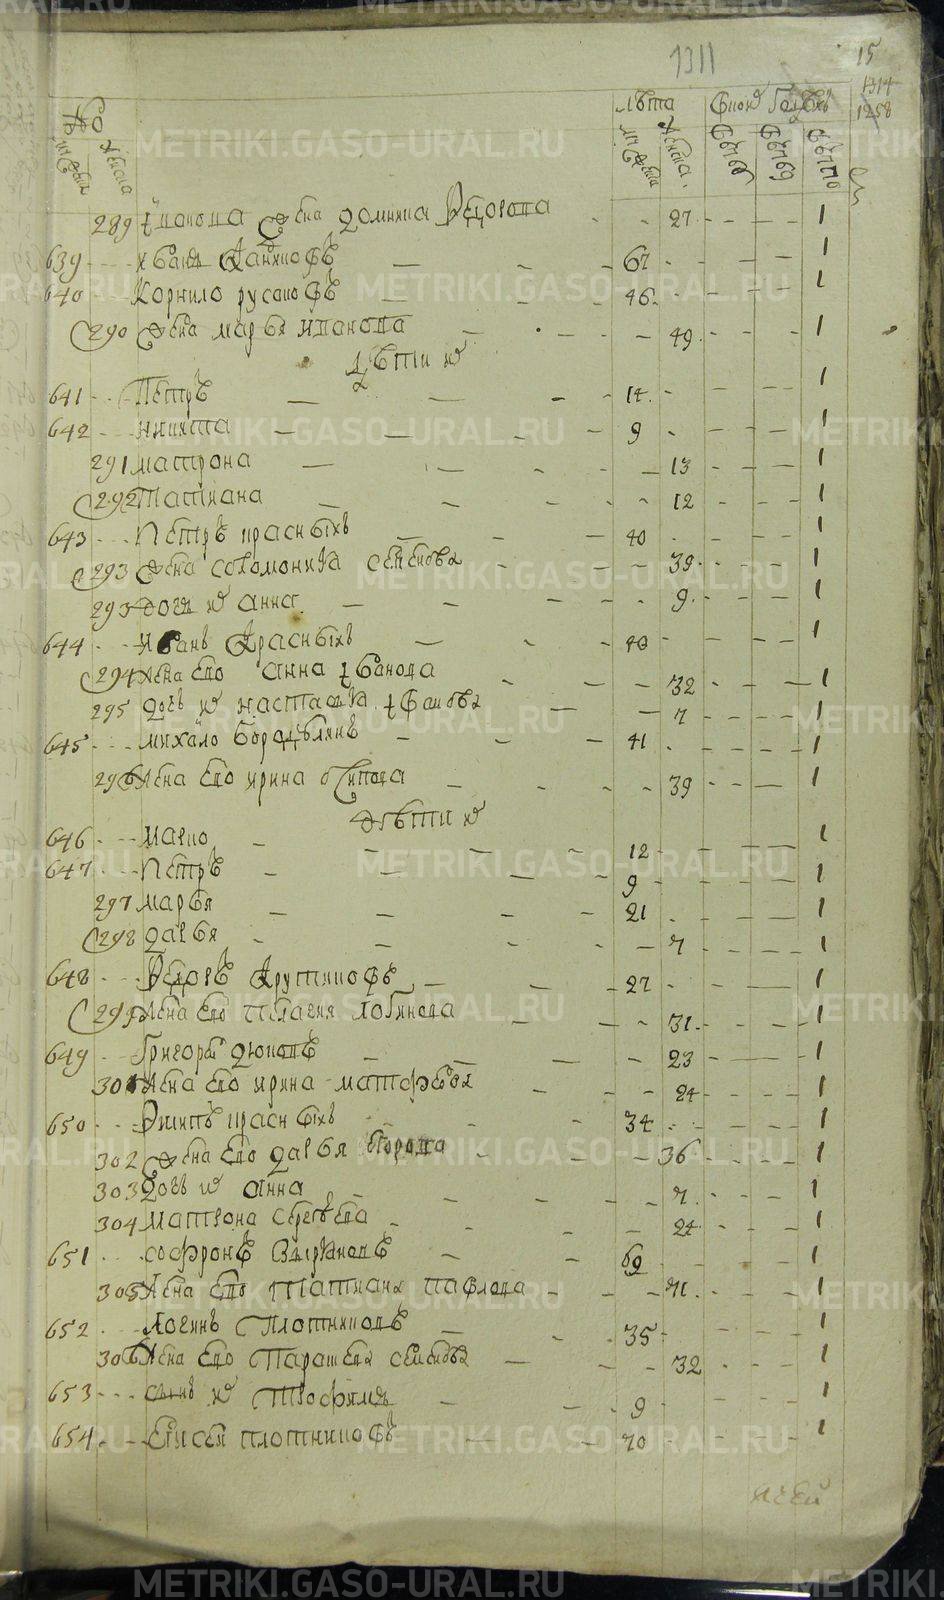 1311
15
1314
1258
лѣта
мужеска
женска
289 жена домника Ѳедорова 27 1
639 67 1
640 корнило русаковъ 46 1
290 жена марья иванова 49 1
дѣти
641 Петръ 14 1
642 никита 9 1
291 матрона 13 1
292 татиана 12 1
643 Петръ красныхъ 40 1
293 жена соломонида семенова 39 1
293 дочь анна 9 1
644 иванъ красныхъ 40 1
294 жена ево анна иванова 32 1
295 дочь настасья иванова 7 1
645 михайло 41 1
296 жена ево ирина осипова 39 1
дѣти
646 марко 12 1
647 Петръ 9 1
297 марья 21 1
298 дарья 7 1
648 Ѳедоръ крутиковъ 27 1
299 жена ево пелагея логинова 31 1
649 Григорей дюковъ 23 1
301 жена ево ирина матфѣева 24 1
650 красныхъ 34 1
302 жена ево дарья 36 1
303 дочь анна 7 1
304 матрона сергѣева 24 1
651 софронъ 69 1
305 жена ево татиана павлова 71 1
652 логинъ плотниковъ 35 1
306 жена ево парасковья семенова 32 1
653 сынъ трофимъ 9 1
654 елисей плотниковъ 70 1
METRIKI.GASO-URAL.RU